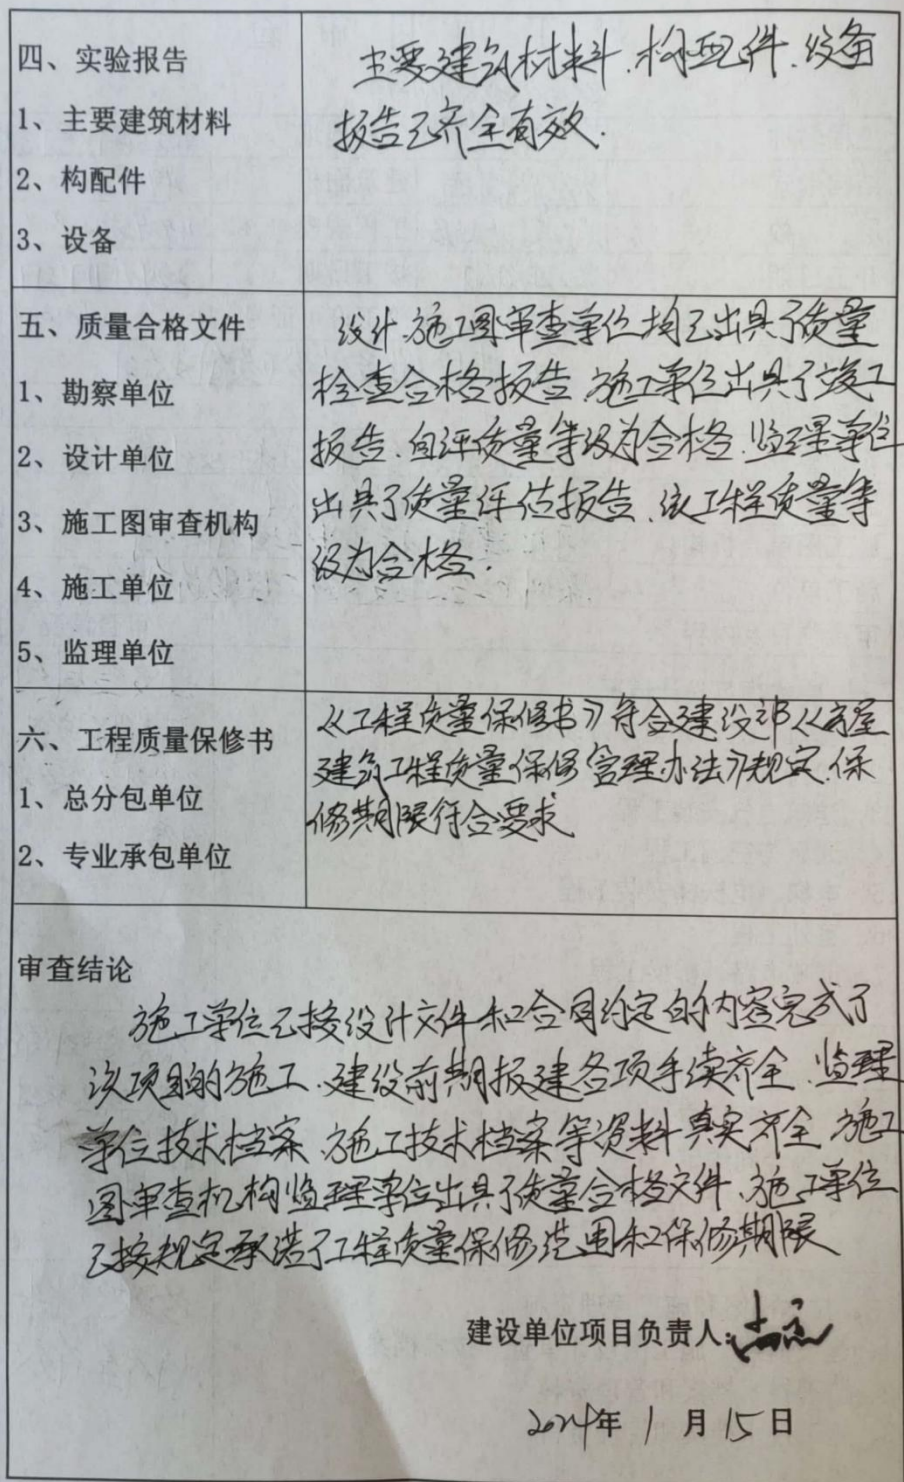 四、实验报告
1、主要建筑材料
2、构配件
3、设备
主要建筑材料、构配件、设备
报告已齐全有效.
五、质量合格文件
1、勘察单位
2、设计单位
3、施工图审查机构
4、施工单位
5、监理单位
设计、施工图审查单位均已出具了质量
检查合格报告、施工单位出具了竣工
报告、自评质量等级为合格、监理单位
出具了质量评估报告、该工程质量等
级为合格.
六、工程质量保修书
1、总分包单位
2、专业承包单位
《工程质量保修书》符合建设部《房屋
建筑工程质量保修管理办法》规定、保
修期限符合要求
审查结论
施工单位已按设计文件和合同约定的内容完成了
该项目的施工、建设前期报建各项手续齐全、监理
单位技术档案、施工技术档案等资料真实齐全、施工
图审查机构监理单位出具了质量合格文件、施工单位
已按规定承诺了工程质量保修范围和保修期限
建设单位项目负责人:
2024年1月15日